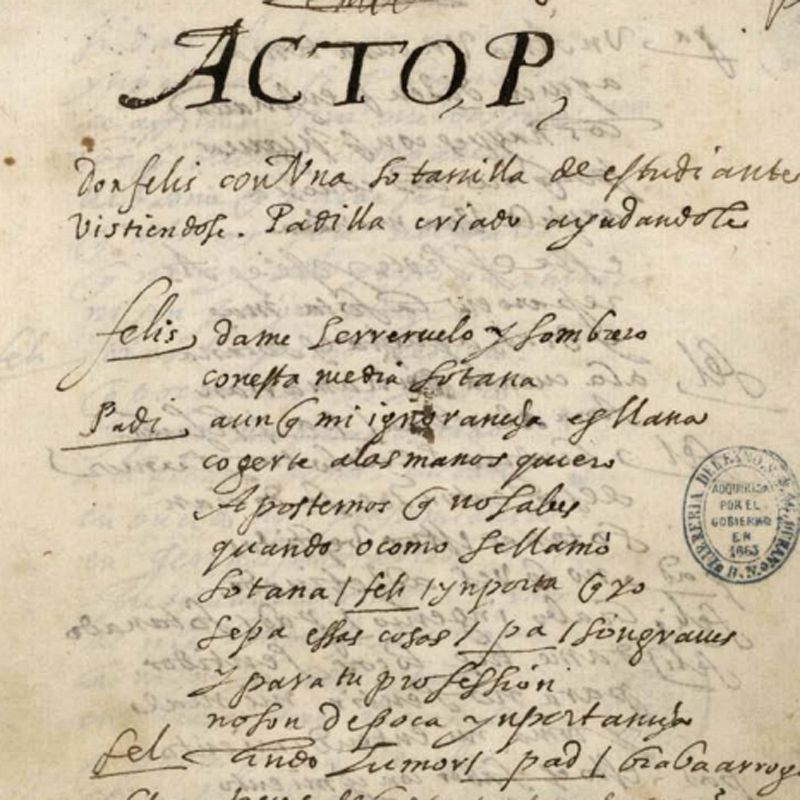 ACTO, P,
Don felis con Vna sotanilla de estudiante
vistiendose. Padilla criado ayudandole
felis dame ferreruelo y sombrero
con esta media sotana
Padi aunq mi ignorançia es llana
cogerte a las manos quiero
Apostemos q no sabes
quando o como se llamò
sotana / feli / ynporta q yo
sepa essas cosas / pa / son graues
y para tu professión
no son de poca ynportançia
fel lindo humor / pad / braba arrog
LIBRERIA DEL EXMO. S. D. A. DURAN B. N.
ADQUIRIDA
POR EL
GOBIERNO
EN
1863